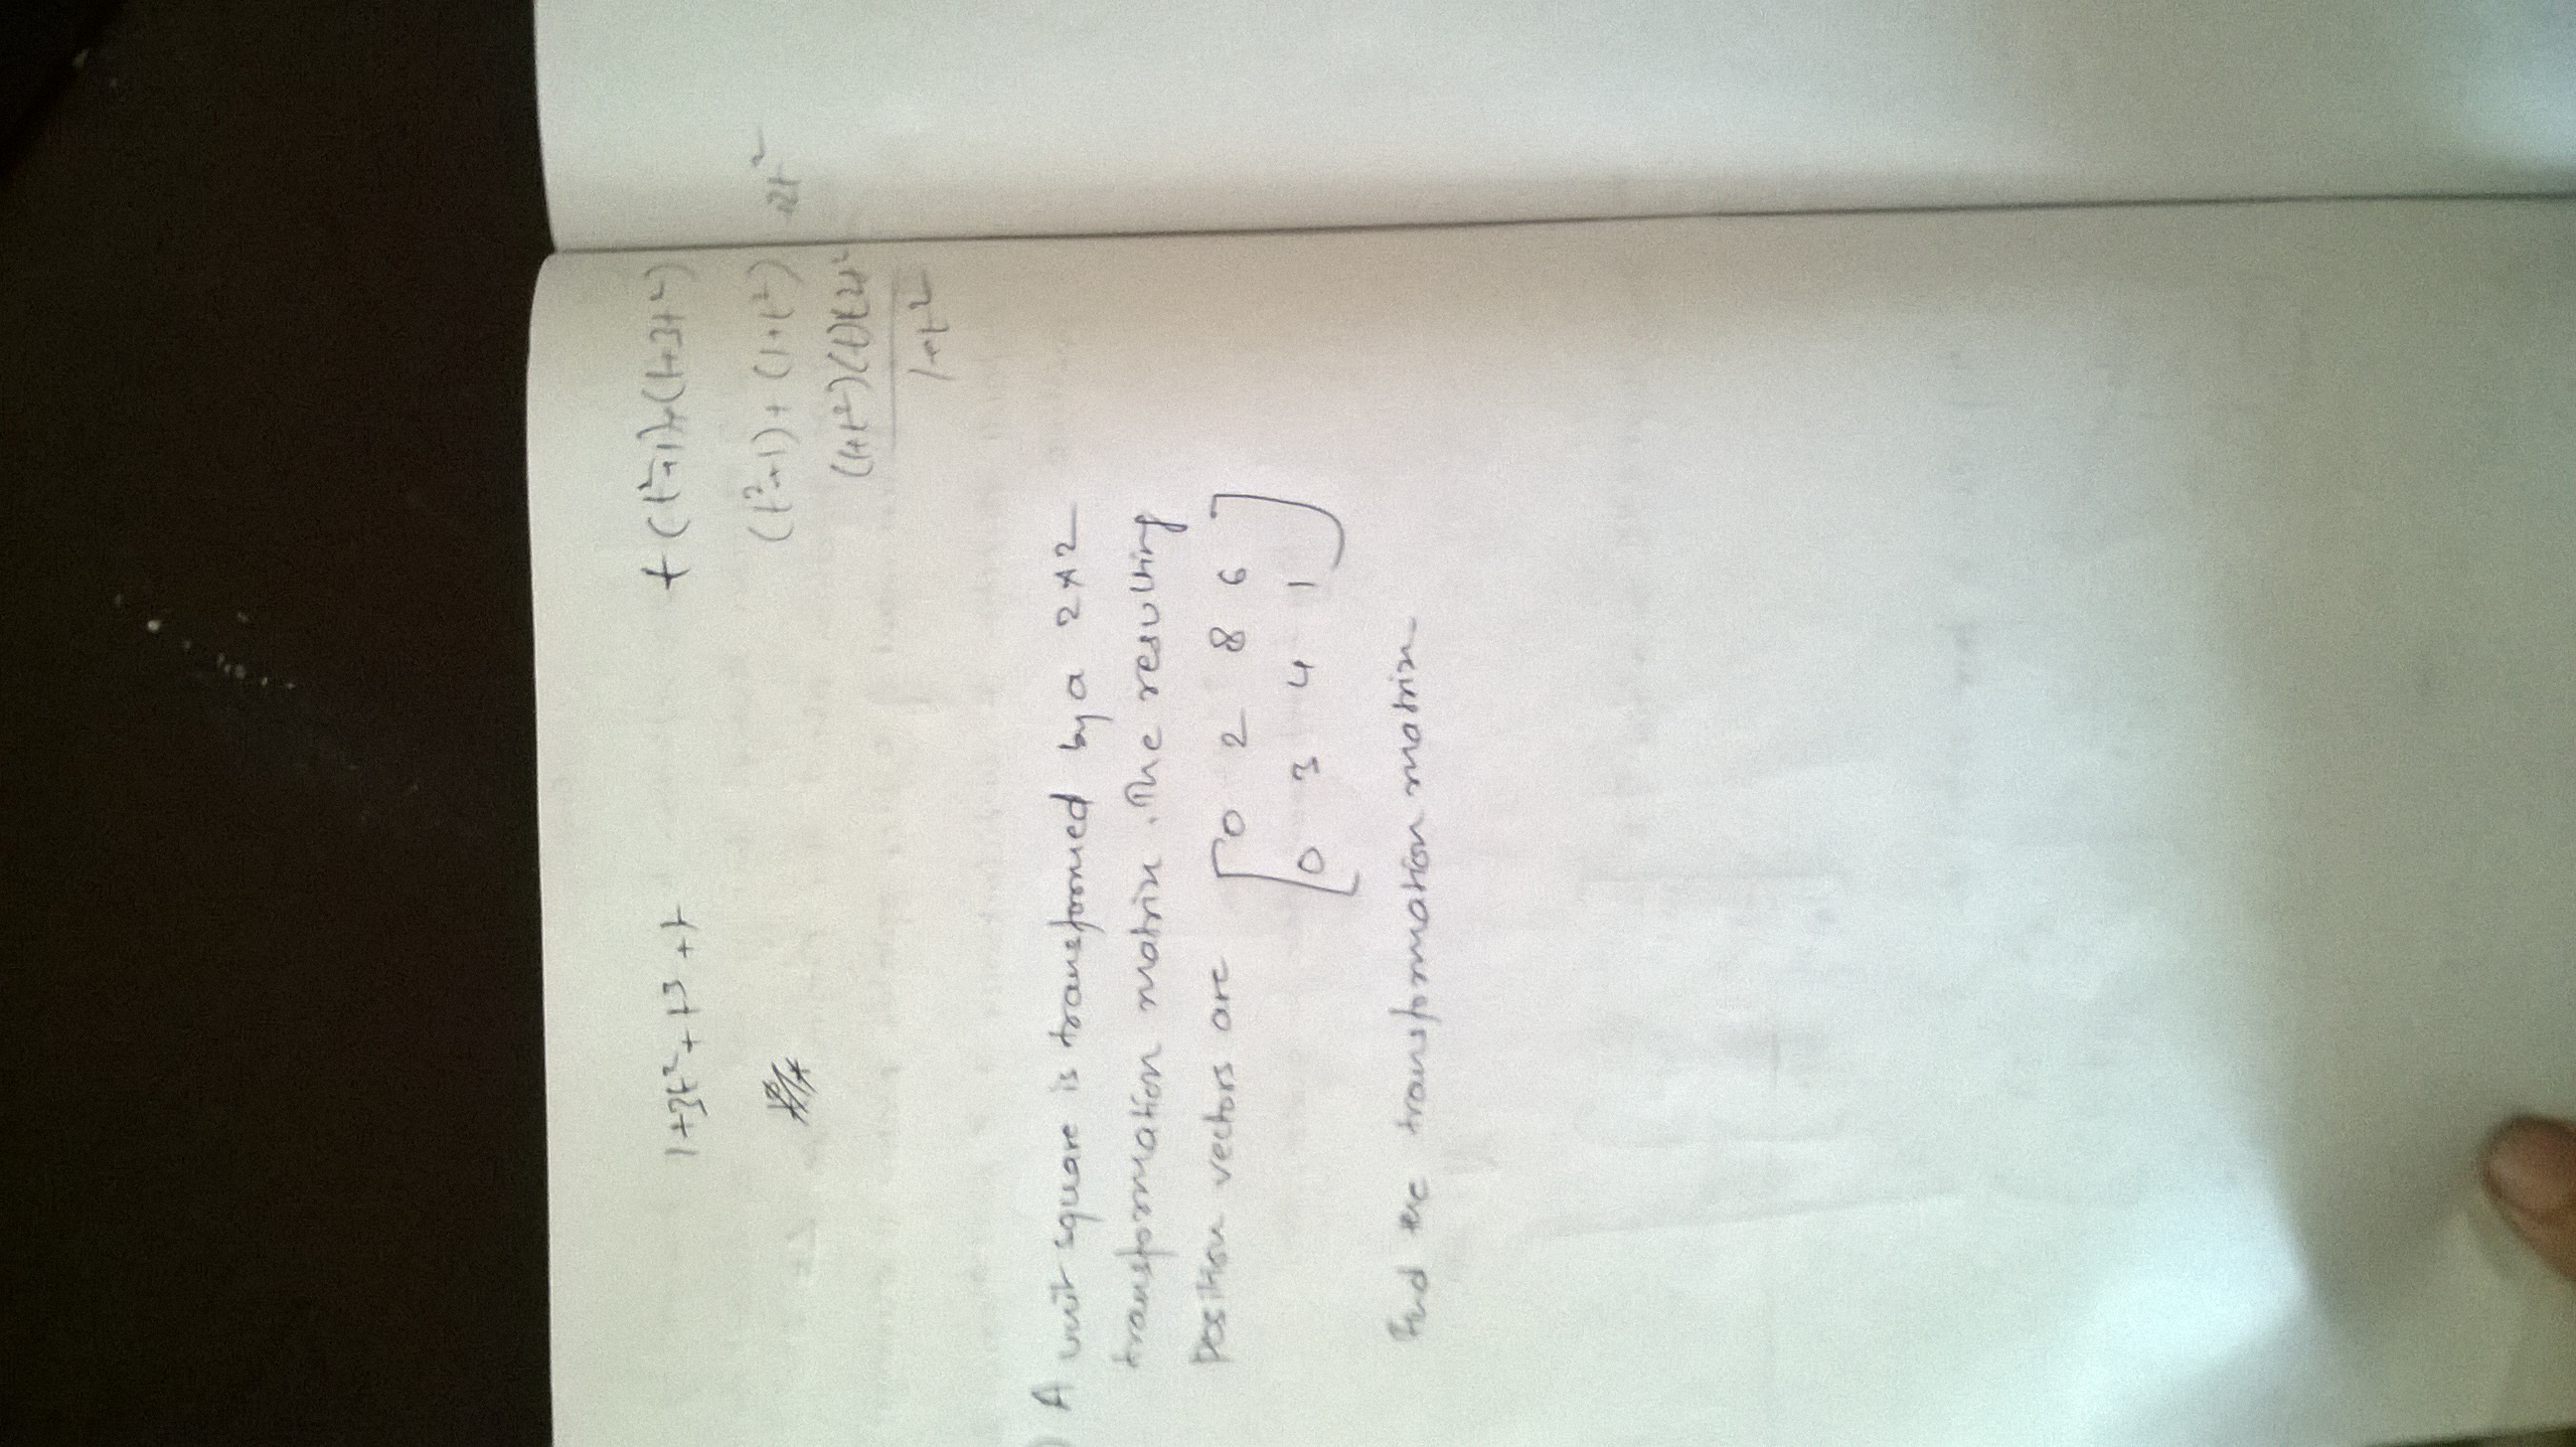 1+3t²+t³+t
t(t²+1)+(1+3t²)
(t²+1)+(1+t²) 2t²
(1+t²)(t)(2t²
1+t²
A unit square is transformed by a 2×2
transformation matrix. The resulting
position vectors are [0 2 8 6]
[0 3 4 1]
Find the transformation matrix